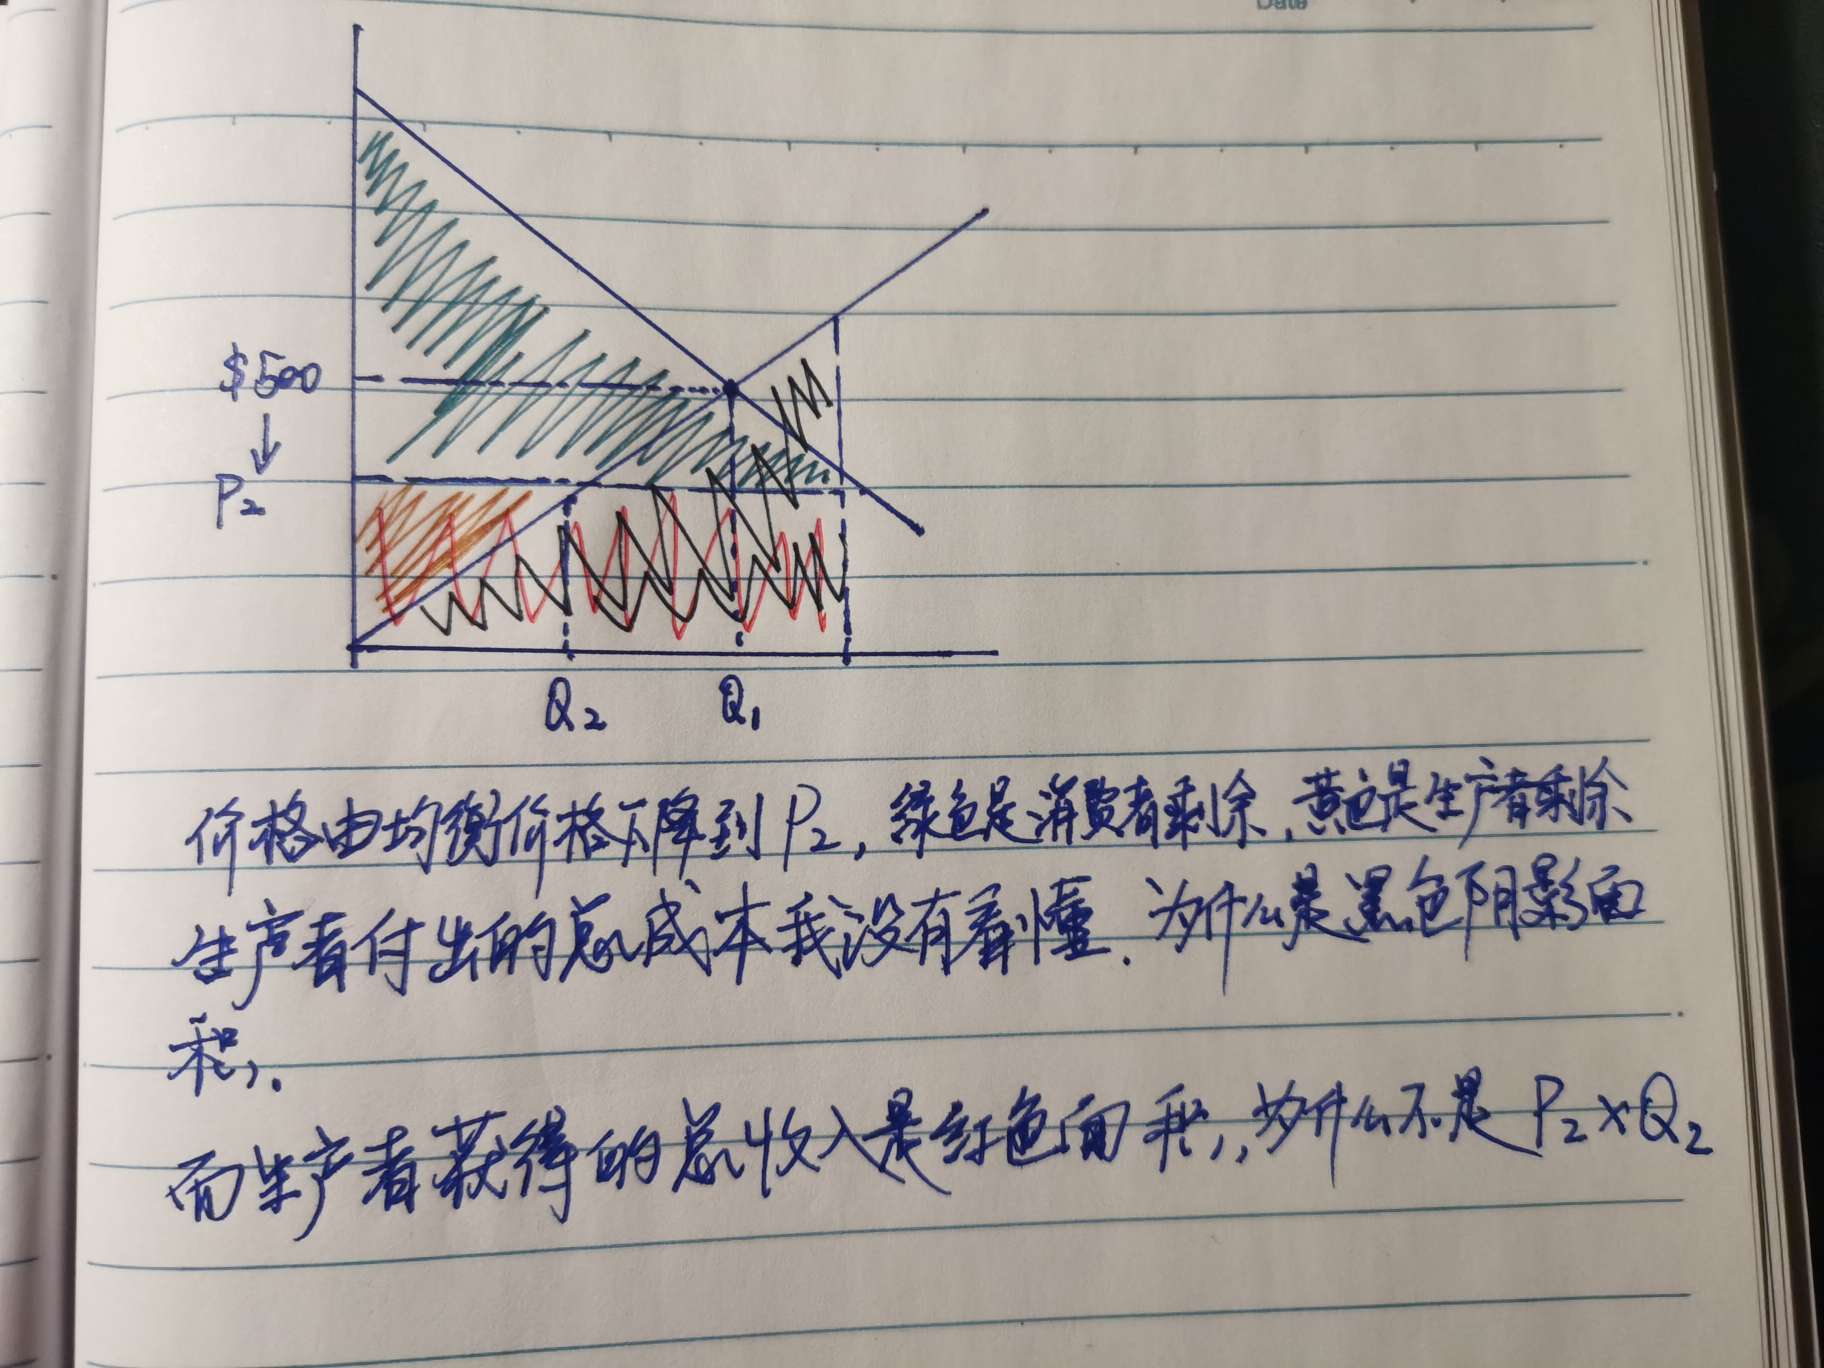 Date
$500
↓
P₂
Q₂ Q₁
价格由均衡价格下降到P₂,绿色是消费者剩余,黄色是生产者剩余
生产者付出的总成本我没有看懂.为什么是黑色阴影面
积,.
而生产者获得的总收入是红色面积,,为什么不是P₂×Q₂